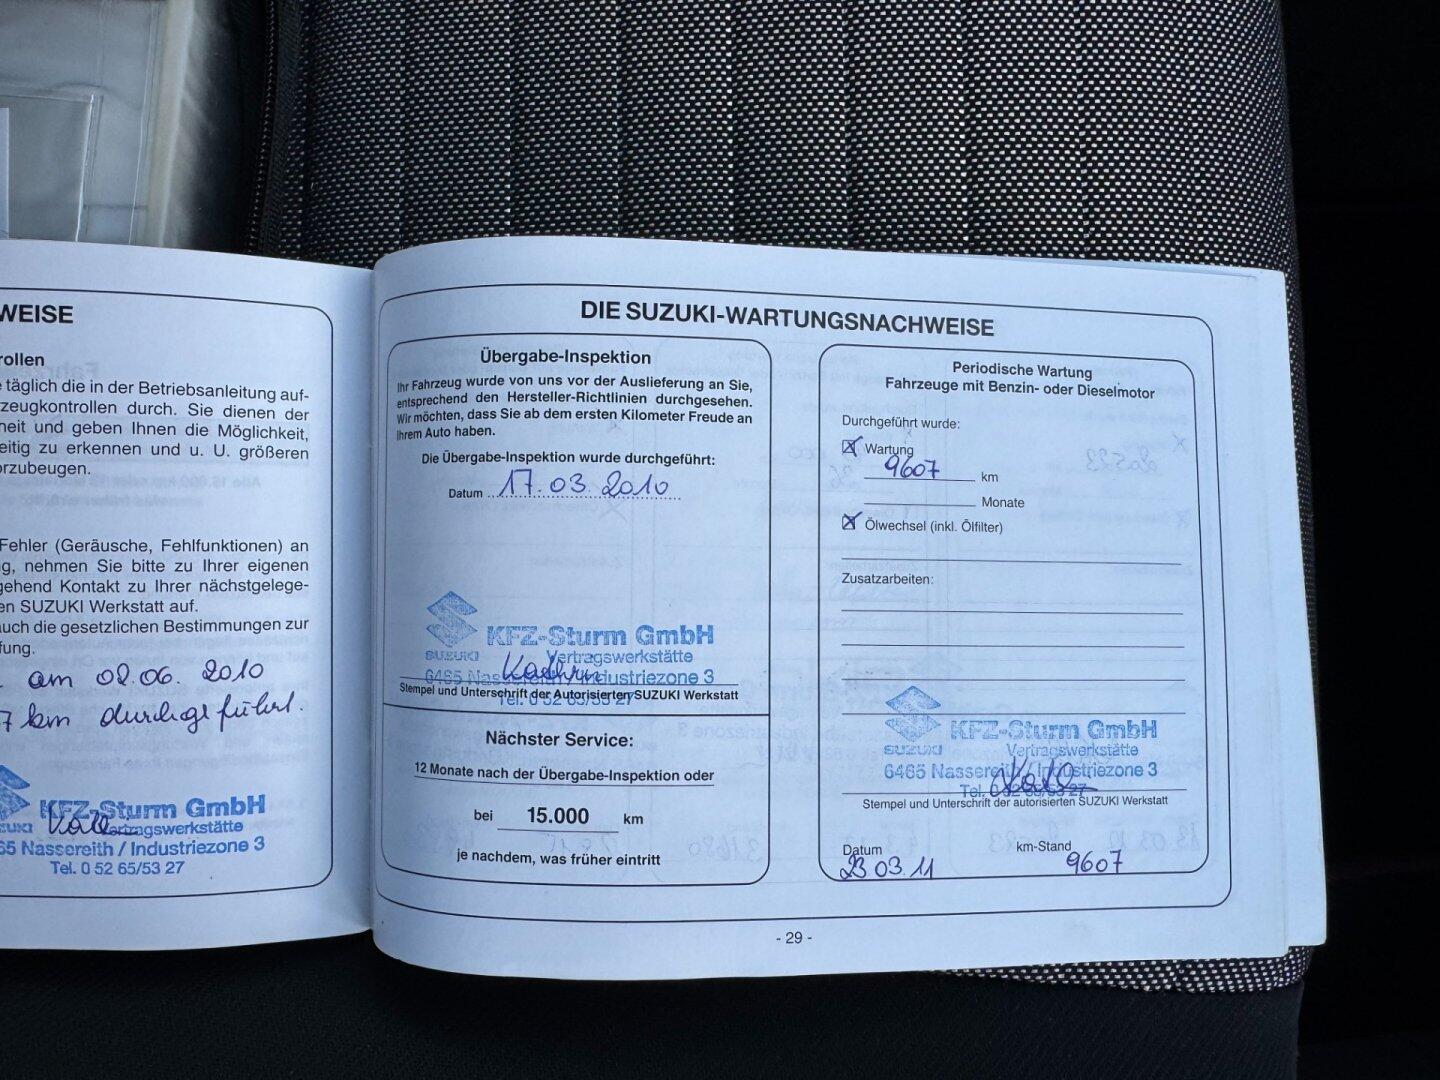 WEISE
rollen
e täglich die in der Betriebsanleitung auf-
zeugkontrollen durch. Sie dienen der
heit und geben Ihnen die Möglichkeit,
eitig zu erkennen und u. U. größeren
orzubeugen.
Fehler (Geräusche, Fehlfunktionen) an
g, nehmen Sie bitte zu Ihrer eigenen
gehend Kontakt zu Ihrer nächstgelege-
en SUZUKI Werkstatt auf.
auch die gesetzlichen Bestimmungen zur
fung.
am 02.06. 2010
7 km durchgeführt.
KFZ-Sturm GmbH
UKI Vertragswerkstätte
65 Nassereith / Industriezone 3
Tel. 0 52 65/53 27
DIE SUZUKI-WARTUNGSNACHWEISE
Übergabe-Inspektion
Ihr Fahrzeug wurde von uns vor der Auslieferung an Sie,
entsprechend den Hersteller-Richtlinien durchgesehen.
Wir möchten, dass Sie ab dem ersten Kilometer Freude an
Ihrem Auto haben.
Die Übergabe-Inspektion wurde durchgeführt:
Datum 17.03.2010
KFZ-Sturm GmbH
SUZUKI Vertragswerkstätte
6465 Nassereith / Industriezone 3
Stempel und Unterschrift der Autorisierten SUZUKI Werkstatt
Tel. 0 52 65/53 27
Nächster Service:
12 Monate nach der Übergabe-Inspektion oder
bei 15.000 km
je nachdem, was früher eintritt
Periodische Wartung
Fahrzeuge mit Benzin- oder Dieselmotor
Durchgeführt wurde:
Wartung
9607 km
Monate
Ölwechsel (inkl. Ölfilter)
Zusatzarbeiten:
KFZ-Sturm GmbH
SUZUKI Vertragswerkstätte
6465 Nassereith / Industriezone 3
Tel. 0 52 65/53 27
Stempel und Unterschrift der autorisierten SUZUKI Werkstatt
Datum km-Stand
23.03.11 9607
- 29 -